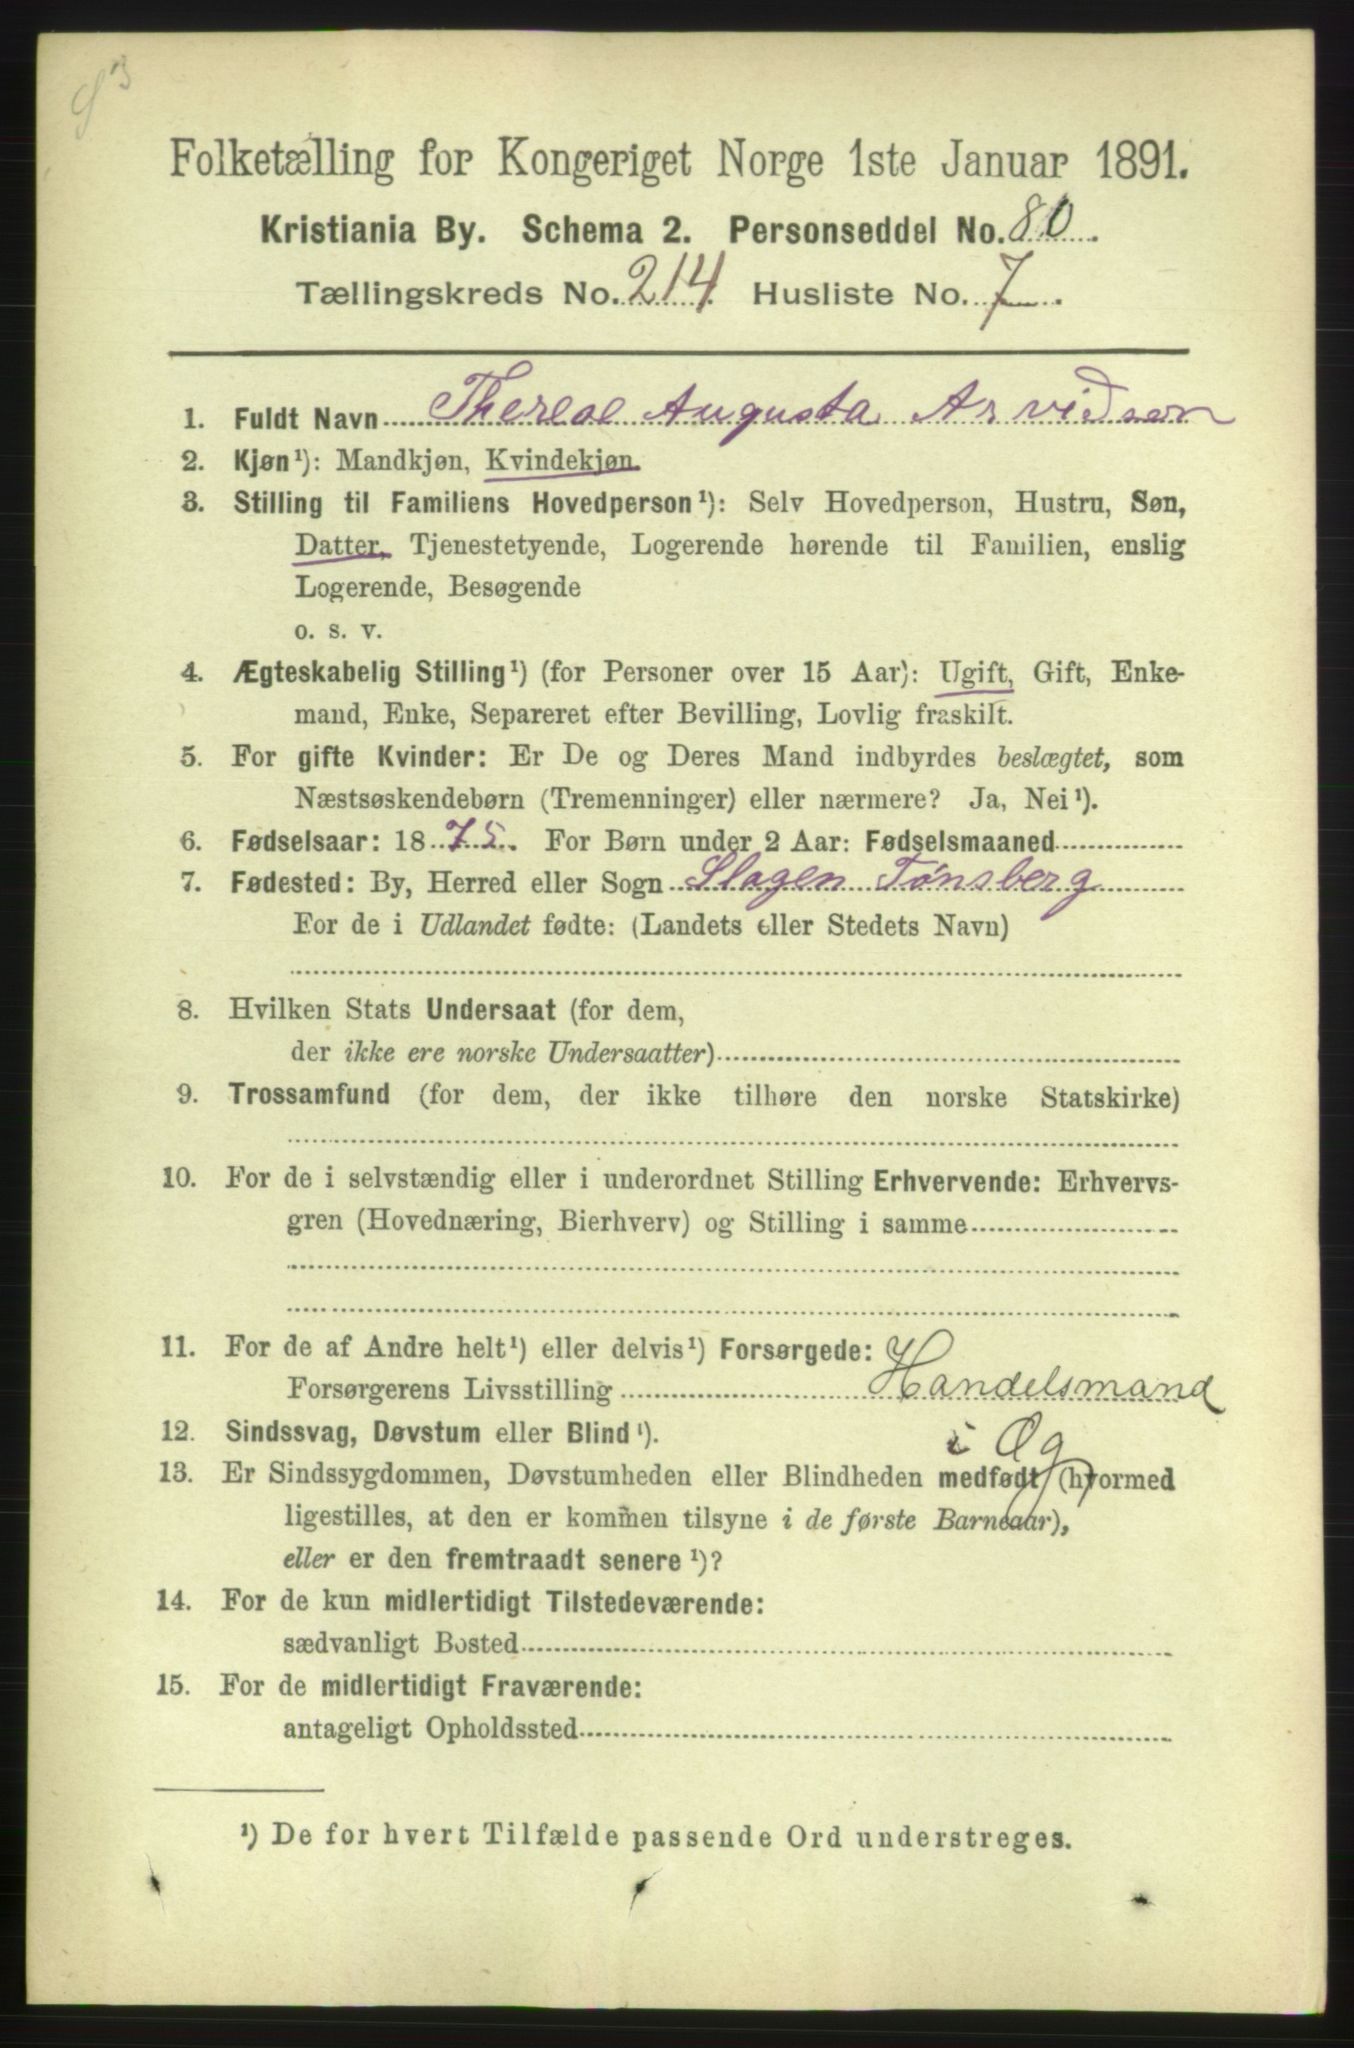 Folketælling for Kongeriget Norge 1ste Januar 1891.
Kristiania By. Schema 2. Personseddel No. 80.
Tællingskreds No. 214. Husliste No. 7.
1. Fuldt Navn Therese Augusta Arvidsen
2. Kjøn¹): Mandkjøn, Kvindekjøn.
3. Stilling til Familiens Hovedperson¹): Selv Hovedperson, Hustru, Søn,
Datter, Tjenestetyende, Logerende hørende til Familien, enslig
Logerende, Besøgende
o. s. v.
4. Ægteskabelig Stilling¹) (for Personer over 15 Aar): Ugift, Gift, Enke-
mand, Enke, Separeret efter Bevilling, Lovlig fraskilt.
5. For gifte Kvinder: Er De og Deres Mand indbyrdes beslægtet, som
Næstsøskendebørn (Tremenninger) eller nærmere? Ja, Nei¹).
6. Fødselsaar: 1875. For Børn under 2 Aar: Fødselsmaaned
7. Fødested: By, Herred eller Sogn Slagen Tønsberg
For de i Udlandet fødte: (Landets eller Stedets Navn)
8. Hvilken Stats Undersaat (for dem,
der ikke ere norske Undersaatter)
9. Trossamfund (for dem, der ikke tilhøre den norske Statskirke)
10. For de i selvstændig eller i underordnet Stilling Erhvervende: Erhvervs-
gren (Hovednæring, Bierhverv) og Stilling i samme
11. For de af Andre helt¹) eller delvis¹) Forsørgede:
Forsørgerens Livsstilling Handelsmand
12. Sindssvag, Døvstum eller Blind¹). i Æg
13. Er Sindssygdommen, Døvstumheden eller Blindheden medfødt (hvormed
ligestilles, at den er kommen tilsyne i de første Barneaar),
eller er den fremtraadt senere¹)?
14. For de kun midlertidigt Tilstedeværende:
sædvanligt Bosted
15. For de midlertidigt Fraværende:
antageligt Opholdssted
¹) De for hvert Tilfælde passende Ord understreges.